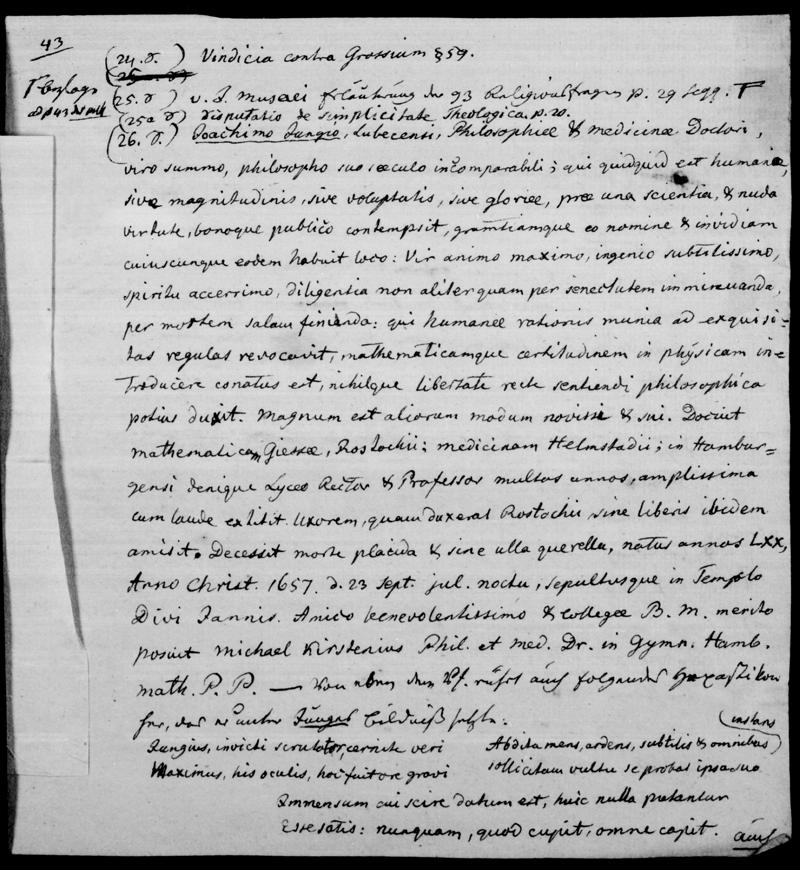 43
(24. δ.) Vindicia contra Grossium § 59.
(25. δ) v. J. Musaei Erläuterung der 93 Religionsfragen p. 29 seqq. Γ
(25a δ) Disputatio de simplicitate Theologica. p. 20.
(26. δ.) Joachimo Jungio, Lubecensi, Philosophiae & medicinae Doctori,
viro summo, philosopho suo saeculo incomparabili; qui quidquid est humanae,
sive magnitudinis, sive voluptatis, sive gloriae, prae una scientia, & nuda
virtute, bonoque publico contempsit, gratiamque eo nomine & invidiam
cuiuscunque eodem habuit loco: Vir animo maximo, ingenio subtilissimo,
spiritu accerrimo, diligentia non aliter quam per senectutem imminuanda,
per mortem salam finienda: qui humanae rationis munia ad exquisi-
tas regulas revocavit, mathematicamque certitudinem in physicam in=
troducere conatus est, nihilque libertate recte sentiendi philosophica
potius duxit. Magnum est aliorum modum novisse & sui. Docuit
mathematicam Giessae, Rostochii; medicinam Helmstadii; in Hambur=
gensi denique Lyceo Rector & Professor multos annos, amplissima
cum laude extitit. Uxorem, quam duxerat Rostochii, sine liberis ibidem
amisit. Decessit morte placida & sine ulla querella, natus annos LXX,
Anno Christ. 1657. d. 23 Sept. jul. noctu, sepultusque in Templo
Divi Jannis. Amico benevolentissimo & Collegae B. M. merito
posuit Michael Kirstenius Phil. et Med. Dr. in Gymn. Hamb.
Math. P. P. — Von eben dem Vf. rührt auch folgendes Hexastikon
her, das er unter Jungs Bildniß setzte:
Jungius, invicti scrutator, cernite veri
Maximus, his oculis, hoc fuit ore gravi
Abdita mens, ardens, subtilis & omnibus (instans)
sollicitam vultu se probat ipsa suo
Immensum cui scire datum est, huic nulla putantur
Esse satis: nunquam, quod cupit, omne capit. auch